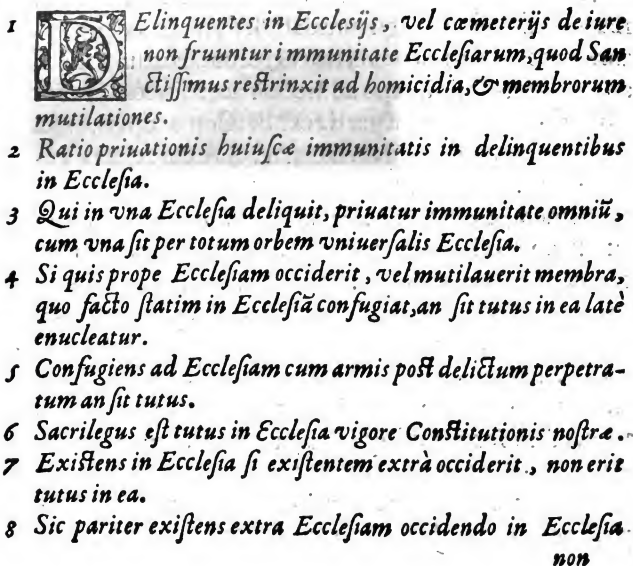 1 DElinquentes in Ecclesijs, vel cœmeterijs de iure
non fruuntur immunitate Ecclesiarum, quod San
ctissimus restrinxit ad homicidia, & membrorum
mutilationes.
2 Ratio priuationis huiuscæ immunitatis in delinquentibus
in Ecclesia.
3 Qui in vna Ecclesia deliquit, priuatur immunitate omniũ,
cum vna sit per totum orbem vniuersalis Ecclesia.
4 Si quis prope Ecclesiam occiderit, vel mutilauerit membra,
quo facto statim in Ecclesiã confugiat, an sit tutus in ea latè
enucleatur.
5 Confugiens ad Ecclesiam cum armis post delictum perpetra-
tum an sit tutus.
6 Sacrilegus est tutus in Ecclesia vigore Constitutionis nostræ.
7 Existens in Ecclesia si existentem extrà occiderit, non erit
tutus in ea.
8 Sic pariter existens extra Ecclesiam occidendo in Ecclesia
non